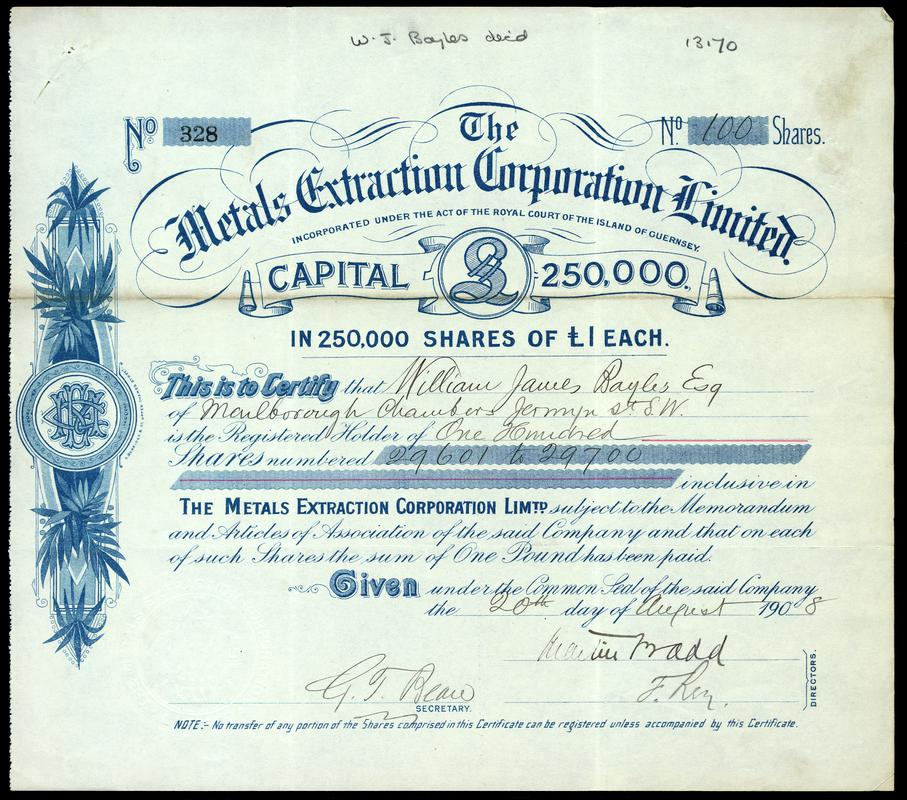 W. J. Bayles decd 13170
No 328 The No. 100 Shares.
Metals Extraction Corporation Limited.
INCORPORATED UNDER THE ACT OF THE ROYAL COURT OF THE ISLAND OF GUERNSEY.
CAPITAL £ 250,000.
IN 250,000 SHARES OF £1 EACH.
This is to Certify that William James Bayles Esq
of Marlborough Chambers Jermyn St. S.W.
is the Registered Holder of One Hundred
Shares numbered 29601 to 29700
inclusive in
THE METALS EXTRACTION CORPORATION LIMTD. subject to the Memorandum
and Articles of Association of the said Company and that on each
of such Shares the sum of One Pound has been paid.
Given under the Common Seal of the said Company
the 20th day of August 1908
Martin
G. T. Bean F.
SECRETARY.
DIRECTORS.
NOTE:- No transfer of any portion of the Shares comprised in this Certificate can be registered unless accompanied by this Certificate.